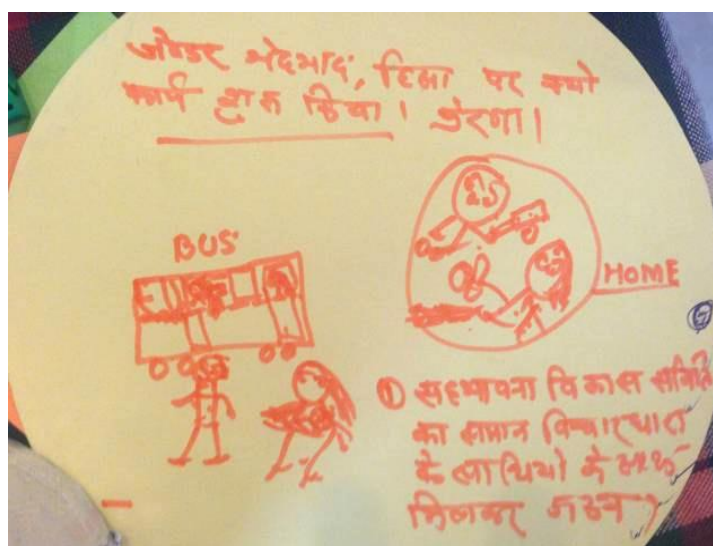 जेण्डर भेदभाव, हिंसा पर क्यो
कार्य शुरू किया। प्रेरणा।
BUS
HOME
① सद्भावना विकास समिति
का समान विचारधारा
के साथियो के साथ
मिलकर गठन